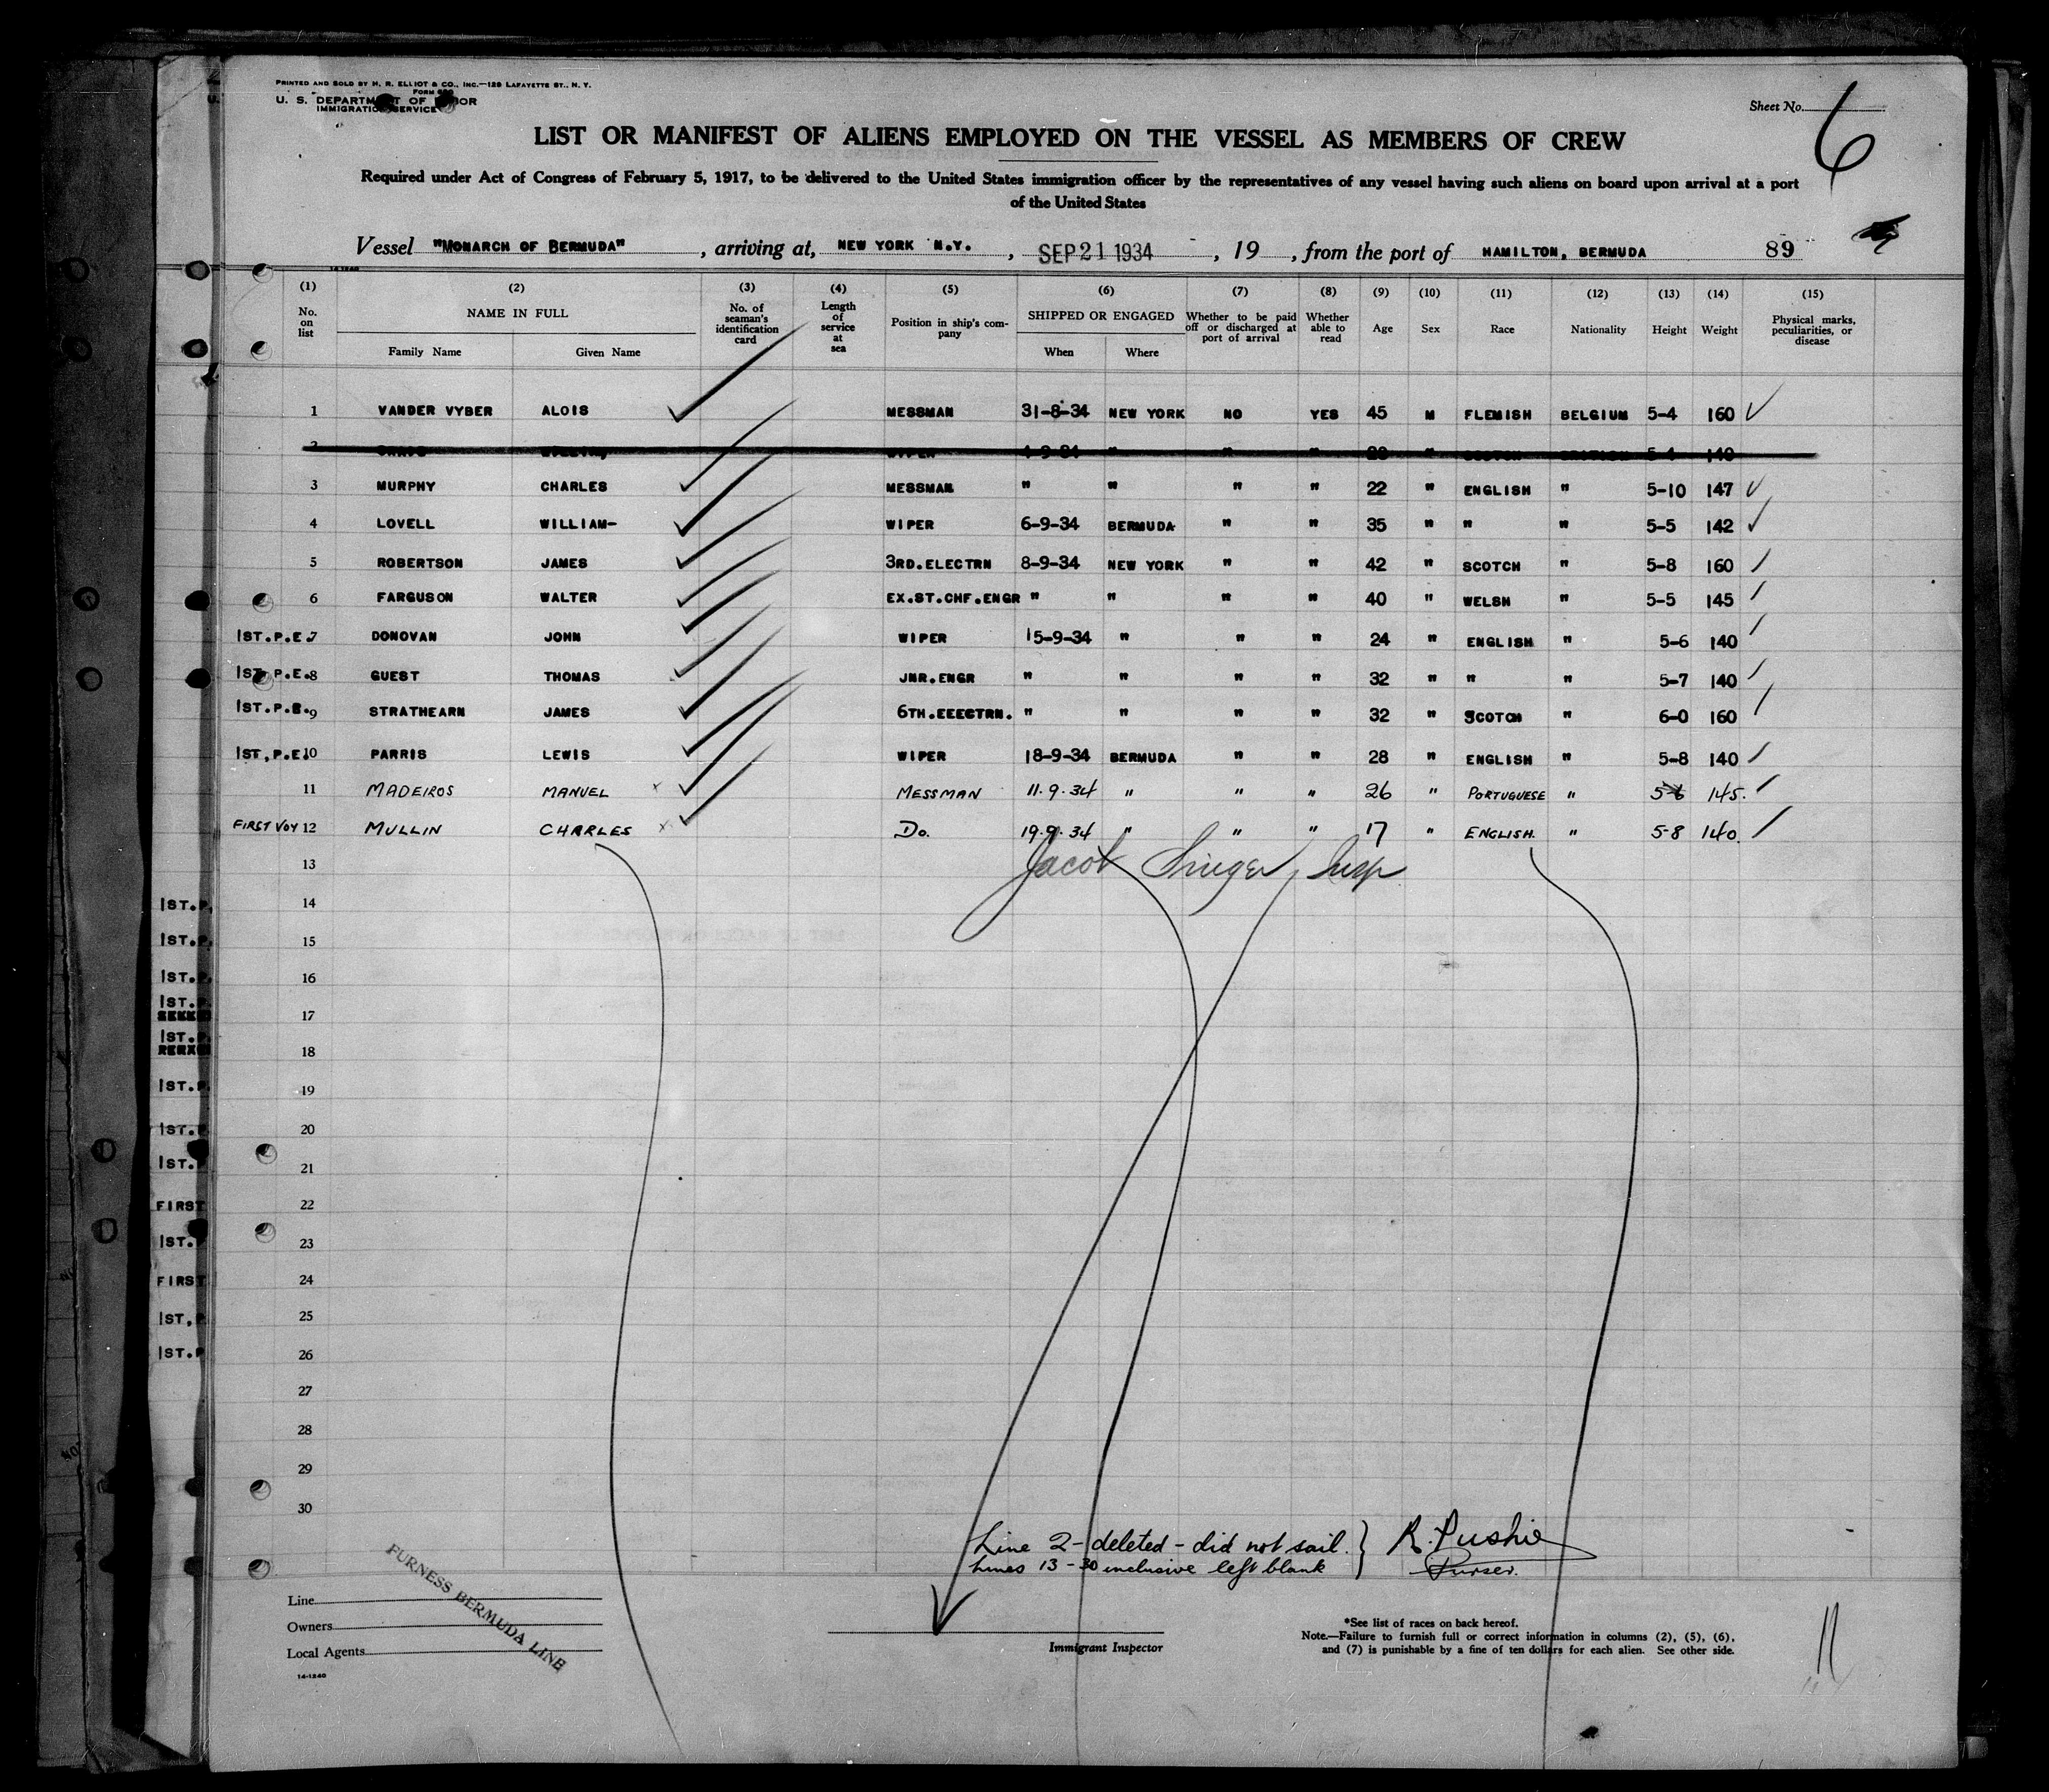 PRINTED AND SOLD BY N. R. ELLIOT & CO., INC.—129 LAFAYETTE ST., N. Y.
FORM
U. S. DEPARTMENT OF LABOR
IMMIGRATION SERVICE
Sheet No. 6
LIST OR MANIFEST OF ALIENS EMPLOYED ON THE VESSEL AS MEMBERS OF CREW
Required under Act of Congress of February 5, 1917, to be delivered to the United States immigration officer by the representatives of any vessel having such aliens on board upon arrival at a port
of the United States
Vessel "MONARCH OF BERMUDA", arriving at, NEW YORK N.Y., SEP 21 1934, 19 , from the port of HAMILTON, BERMUDA 89
14-1240
(1) (2) (3) (4) (5) (6) (7) (8) (9) (10) (11) (12) (13) (14) (15)
No. on list NAME IN FULL Family Name Given Name No. of seaman's identification card Length of service at sea Position in ship's company SHIPPED OR ENGAGED When Where Whether to be paid off or discharged at port of arrival Whether able to read Age Sex Race Nationality Height Weight Physical marks, peculiarities, or disease
1 VANDER VYBER ALOIS MESSMAN 31-8-34 NEW YORK NO YES 45 M FLEMISH BELGIUM 5-4 160
2 WIPER 4-9-34 " " " 28 " SCOTCH BRITISH 5-4 140
3 MURPHY CHARLES MESSMAN " " " " 22 " ENGLISH " 5-10 147
4 LOVELL WILLIAM- WIPER 6-9-34 BERMUDA " " 35 " " " 5-5 142
5 ROBERTSON JAMES 3RD.ELECTRN 8-9-34 NEW YORK " " 42 " SCOTCH " 5-8 160
6 FARGUSON WALTER EX.ST.CHF.ENGR " " " " 40 " WELSH " 5-5 145
1ST.P.E. 7 DONOVAN JOHN WIPER 15-9-34 " " " 24 " ENGLISH " 5-6 140
1ST.P.E. 8 GUEST THOMAS JNR.ENGR " " " " 32 " " " 5-7 140
1ST.P.E. 9 STRATHEARN JAMES 6TH.EEECTRN. " " " " 32 " SCOTCH " 6-0 160
1ST,P.E. 10 PARRIS LEWIS WIPER 18-9-34 BERMUDA " " 28 " ENGLISH " 5-8 140
11 MADEIROS MANUEL x MESSMAN 11.9.34 " " " 26 " PORTUGUESE " 5-6 145.
FIRST VOY 12 MULLIN CHARLES x Do. 19.9.34 " " " 17 " ENGLISH. " 5-8 140.
13 Jacob Insp
14
15
16
17
18
19
20
21
22
23
24
25
26
27
28
29
30
1ST.P.
1ST.P.
1ST.P.
1ST.P.
1ST.P.
1ST.P.
1ST.P.
1ST.
FIRST
1ST.
FIRST
1ST,P
1ST.P
Line 2 - deleted - did not sail. } R. Pushie
Lines 13 - 30 inclusive left blank Purser.
Line
Owners
Local Agents
FURNESS BERMUDA LINE
14-1240
Immigrant Inspector
*See list of races on back hereof.
Note.—Failure to furnish full or correct information in columns (2), (5), (6),
and (7) is punishable by a fine of ten dollars for each alien. See other side.
11